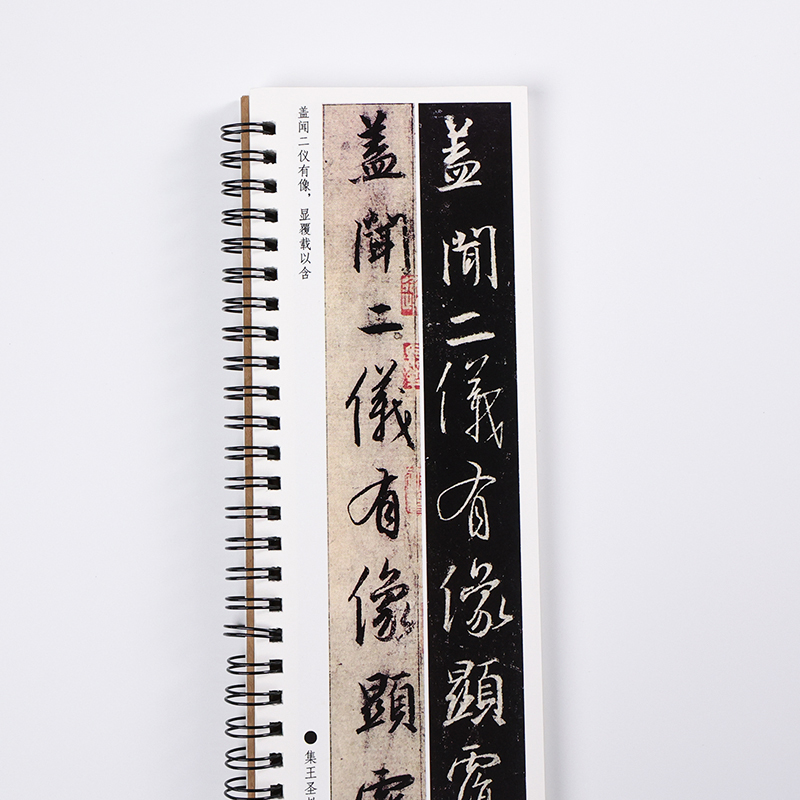 盖闻二仪有像，显覆载以含
盖聞二儀有像顯
盖聞二儀有像顯覆
集王圣